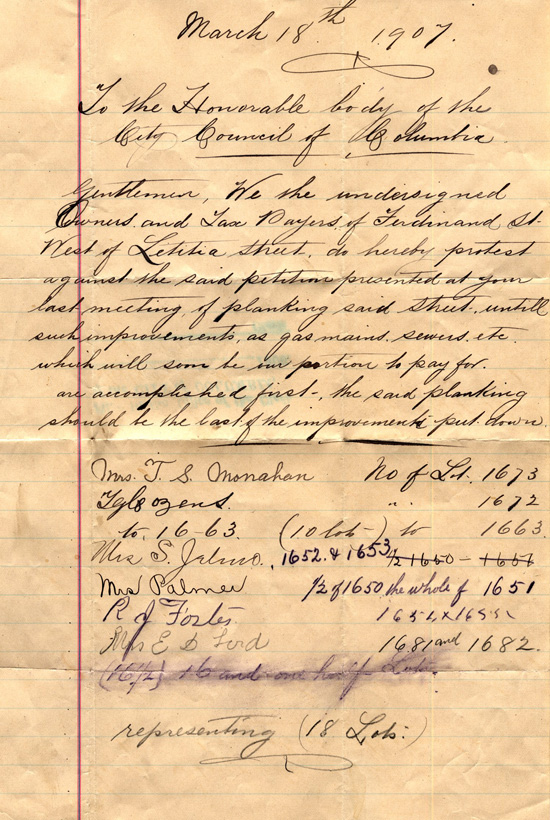 March 18th 1907.
To the Honorable body of the
City Council of Columbia
Gentlemen, We the undersigned
Owners and Tax Payers of Ferdinand St.
West of Letitia Street, do hereby protest
against the said petition presented at your
last meeting, of planking said street, untill
such improvements, as gas mains, sewers, etc.
which will soon be our portion to pay for.
are accomplished first, the said planking
should be the last of the improvements put down.
Mrs. T. S. Monahan No of Lot. 1673
" 1672
to 16-63. (10 lots-) to 1663.
Mrs S. 1652. & 1653 1/2 1650 - 1651
Mrs Palmer 1/2 of 1650 the whole of 1651
R J Foster
Mrs E D Ford 1681 and 1682.
(16 1/2) 16 and one half Lots.
representing (18 Lots.)